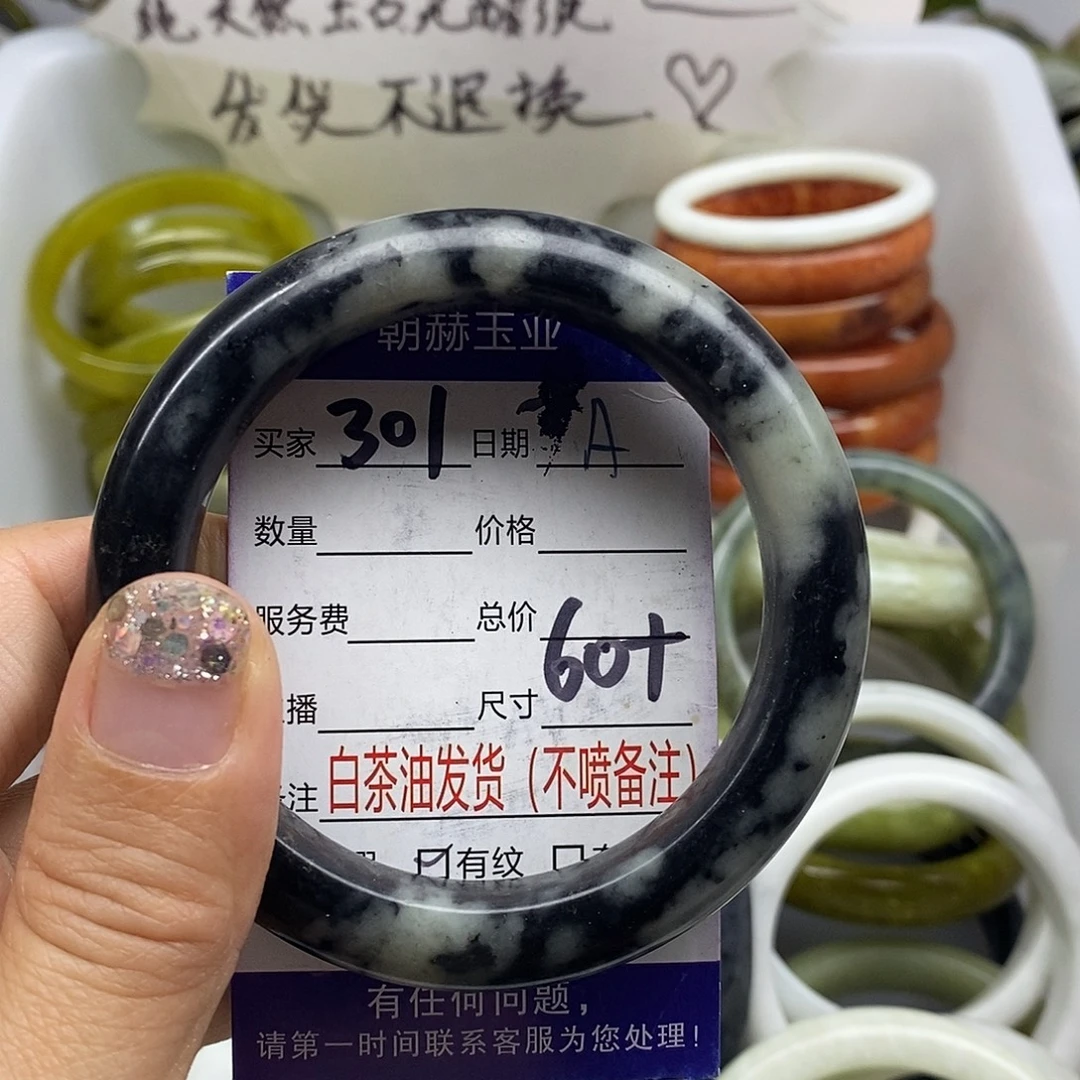 纯天然玉石无酸洗
售货不退换
朝赫玉业
买家 301 日期 A
数量 价格
服务费 总价
播 尺寸 60+
注 白茶油发货（不喷备注）
有纹
有任何问题，
请第一时间联系客服为您处理！